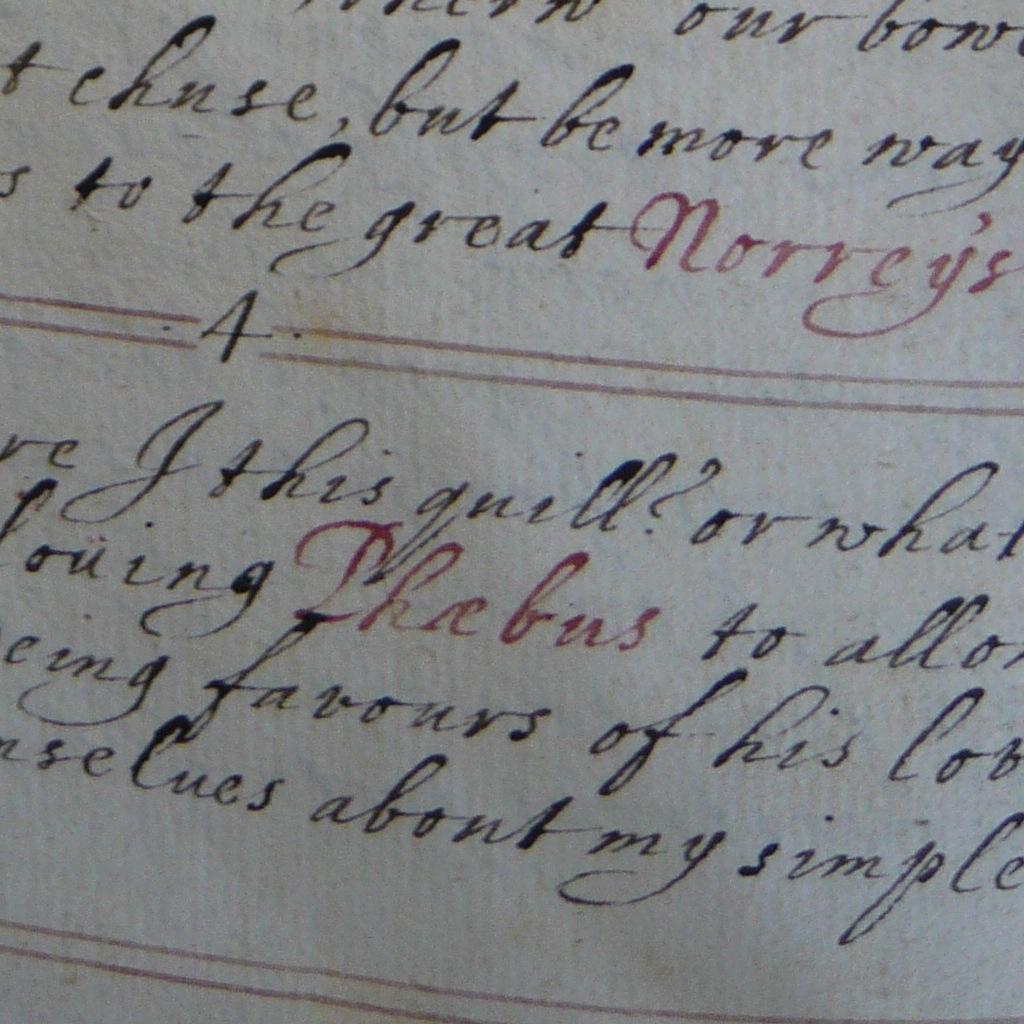 our bow
t chuse, but be more way
s to the great Norreÿs
.4.
re I this quill? or what
loüing Phæbus to allo
eing favours of his lov
nselues about my simple